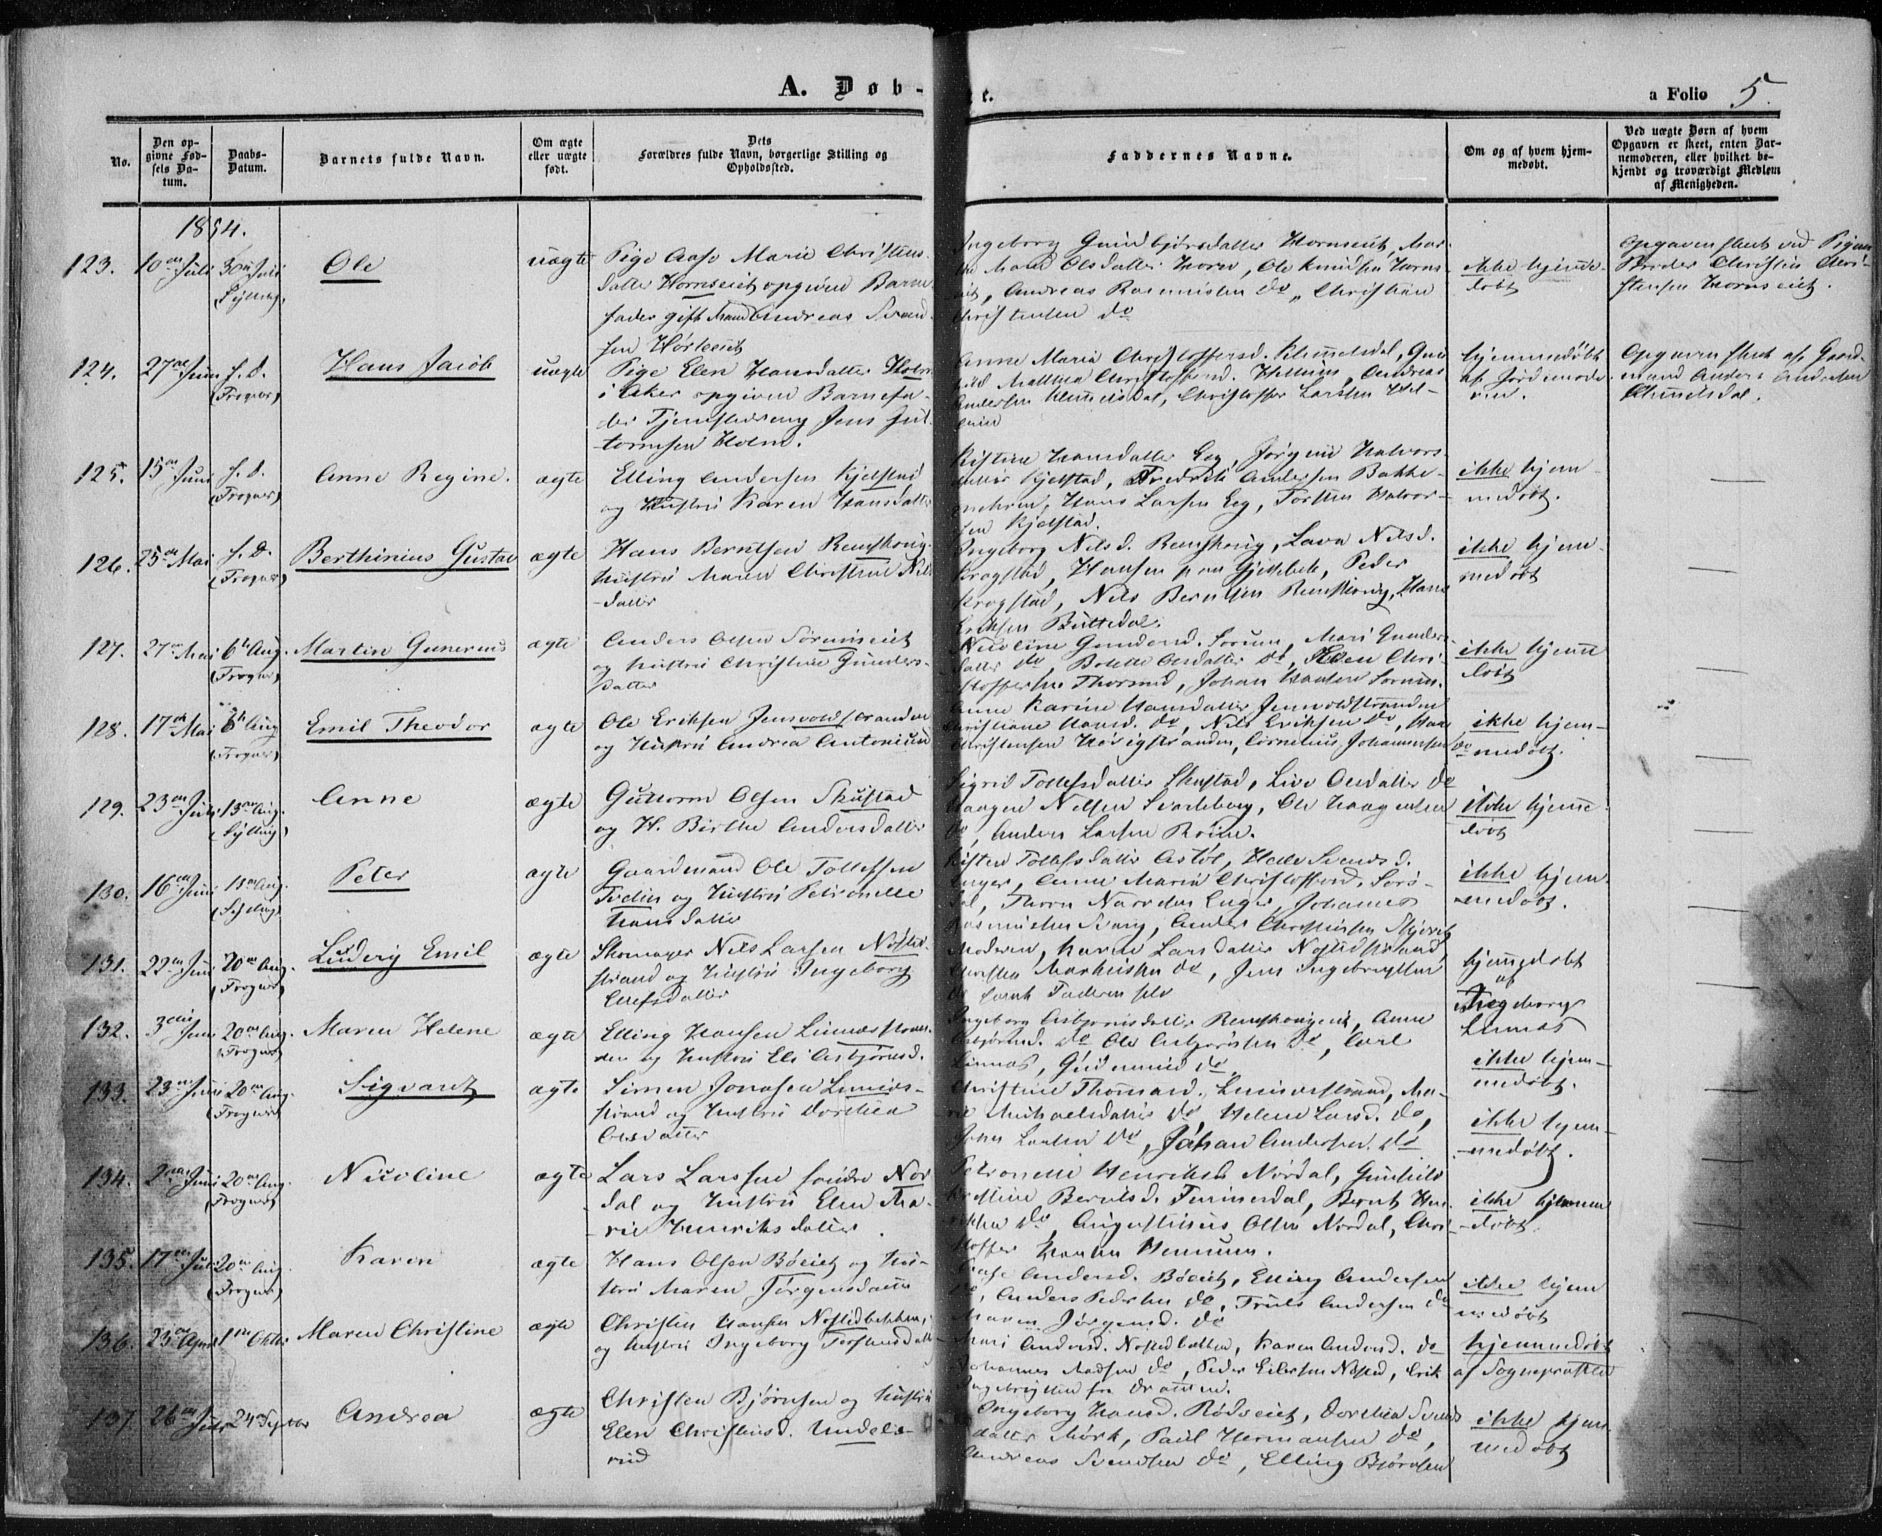 A. Døb-
te.
a Folio 5.
No.
Den opgivne Fødsels Datum.
Daabs-Datum.
Barnets fulde Navn.
Om ægte eller uægte født.
Dets Forældres fulde Navn, borgerlige Stilling og Opholdssted.
Faddernes Navne.
Om og af hvem hjemmedøbt.
Ved uægte Børn af hvem Opgaven er skeet, enten Barnemoderen, eller hvilket bekjendt og troværdigt Medlem af Menigheden.
1854.
123. 10de Juli 30te Juli
Ole
uægte
Pige Aase Marie Christens-
datter Hornseiet opgiven Barne-
fader gift Mand Andreas Svend-
sen
Ingeborg Gunbjørsdatter Hornseiet, Mar-
the Marie Olsdatter Horn, Ole Knudsen Horns-
eiet, Andreas Rasmussen do, Christian
Christensen do
ikke hjemme-
døbt
Opgaven skeet ved Pigens
Broder Christen Chri-
stensen Hornseiet.
124. 27de Juni s. D.
(Frogner)
Hans Jacob
uægte
Pige Elen Hansdatter Holm
i Aker opgiven Barnefa-
der Jens Gut-
tormsen Holm.
Anne Maria Christoffersd.
Andersen Christoffer Larsen
hjemmedøbt
af Jordemode-
ren.
Opgaven skeet af Gaard-
mand Anders Andersen
125. 15de Juni s. D.
(Frogner)
Anne Regine.
ægte
Elling Andersen Kjelstad
og Hustru Karen Hansdatter
Kistine Hansdatter Eeg, Jørgine Halvors-
datter Kjelstad, Fredrik Andersen Bakke-
Hans Larsen Eeg, Torsten Halvor-
sen Kjelstad.
ikke hjem-
medøbt.
126. 25de Mai s. D.
(Frogner)
Berthinius Gustav
ægte
Hans Berntsen Renskoug
Hustru Maren Christine Nils
-datter
Ingeborg Nilsd. Renskoug, Lava Nilsd.
Krogstad, Hansen paa Peder
Krogstad, Nils Berntsen Renskoug, Hans
Eriksen
ikke hjem-
medøbt
127. 27de Mai 6te Aug.
(Frogner)
Martin Gunerius
ægte
Anders Olsen Sørumseiet
og Hustru Christine Gunders-
datter
Nicoline Gundersd. Sørum, Mari Gunders-
datter do, Olsdatter do, Chri-
stoffersen Johan Hansen Sørum.
ikke hjemme
døbt
128. 17de Mai 6te Aug
(Frogner)
Emil Theodor
ægte
Ole Eriksen Jensvoldstranden
og Hustru Andrea
Anne Karine Hansdatter Jensvoldstranden
Christiane Hansd. do, Nils Eriksen do, Hans
Christensen Cornelius Johannesen do
ikke hjem-
medøbt.
129. 23de Juli 13de Aug.
(Sylling)
Anne
ægte
Guttorm Olsen Skustad
og H. Birthe Andersdatter
Sigrid Tollefsdatter Skustad, Live Olsdatter do
Haagen Nilsen Svarteborg, Ole Haagensen
do, Anders Larsen
ikke hjemme-
døbt
130. 16de Juni 13de Aug.
(Sylling)
Peter
ægte
Gaardmand Ole Tollefsen
og Hustru Petronelle
Hansdatter
Kisten Tollefsdatter Svendsd.
Enger, Anne Maria Christoffersd. Sørs-
dal, Thorn Enger, Johannes
Rasmussen Anders Christensen
ikke hjem-
medøbt.
131. 22de Juni 20de Aug.
(Frogner)
Ludvig Emil
ægte
Skomager Nils Larsen Nøsted-
strand og Hustru Ingeborg
Ellefsdatter
Moderen, Karen Larsdatter Nøstedstrand,
Christen Markussen do, Jens Ingebrigtsen
do samt Faderen selv
hjemmedøbt
af
Ingeborg
Linnes
132. 3die Juni 20de Aug.
(Frogner)
Maren Helene
ægte
Elling Hansen Linnesstran-
den og Hustru Eli Asbjørnsd.
Ingeborg Asbjørnsdatter Renskougeiet, Anne
Asbjørnsd. do Ole Asbjørnsen do, Carl
Linnes, Gudmund do
ikke hjem-
medøbt.
133. 23de Juni 20de Aug.
(Frogner)
Sigvart
ægte
Simen Jonasen Linnes-
strand og Hustru Dorthea
Olsdatter
Christine Thomasd. Linnesstrand, Ma-
rie Michaelsdatter do, Helene Larsd. do,
John Larsen do, Johan Andersen do
ikke hjem-
medøbt.
134. 2den Juni 20de Aug.
(Frogner)
Nicoline
ægte
Lars Larssen søndre Nor
dal og Hustru Elen Ma-
rie Henriksdatter.
Petronelle Henriksd. Nordal, Gunhild
Kristine Berntsd. Bernt Hen-
riksen do, Augustinus Olsen Nordal, Chri-
stoffer Hansen Hennum.
ikke hjemme
-døbt.
135. 17de Juli 20de Aug.
(Frogner)
Karen
ægte
Hans Olsen Bøeiet og Hu-
stru Maren Jørgensdatter
Aase Andersd. Bøeiet, Elling Andersen
do, Anders Pedersen do, Truls Andersen do
Maren Jørgensd. do
ikke hjem
medøbt
136. 23de April 1ste Oktbr
Maren Christine
ægte
Christen Hansen Nøstedbakken,
og Hustru Ingeborg Torstensdatt.
Mari Andersd. Nøstedbakken, Karen Andersd. do
Johannes Madsen do, Peder Eilertsen Nøsted, Erik
Ingebrigtsen fra Drammen.
hjemmedøbt
af Sognepræsten
137. 26de Juli 24 Septbr
Andrea
ægte
Christen Bjørnsen og Hustru
Elen Christensd. Undels-
rud
Ingeborg Hansd. Rødseiet, Dorthea Svends
datter Mørk, Paul Hermansen do,
Andreas Svendsen do, Elling Bjørnsen
ikke hjem-
medøbt